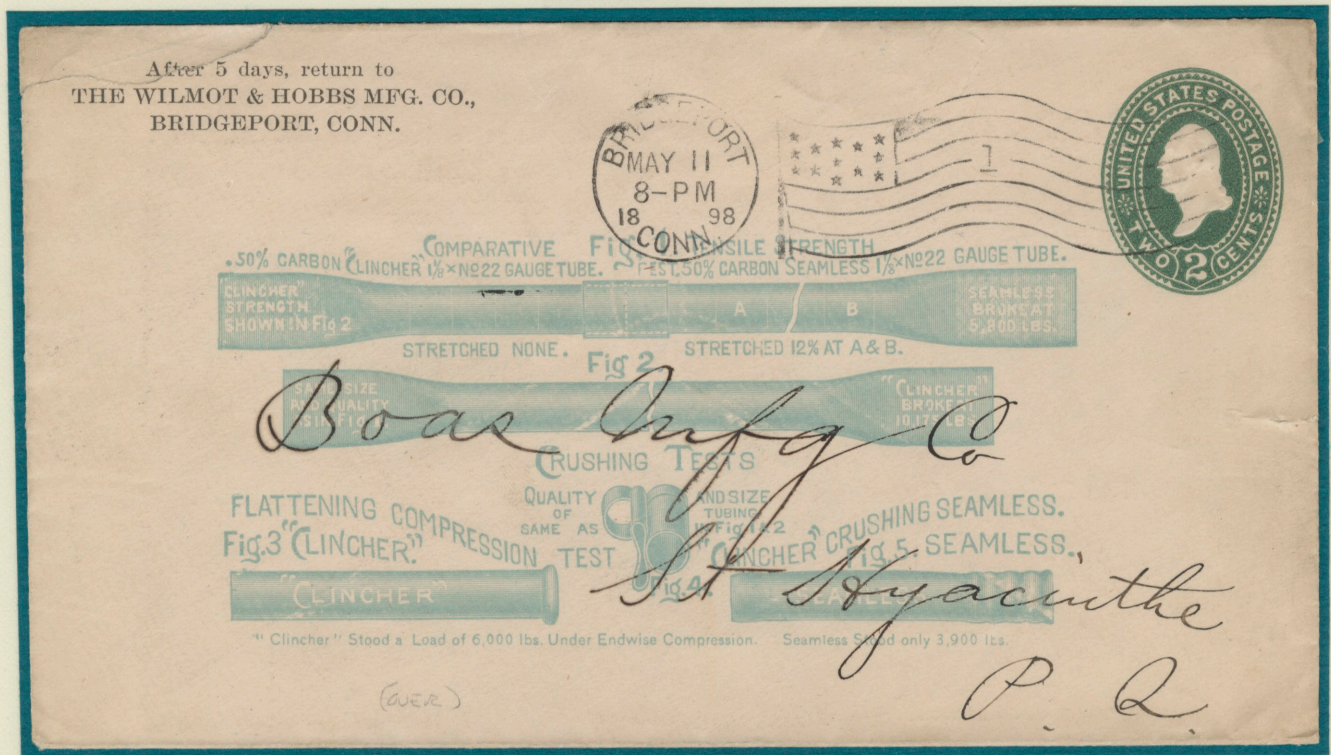 After 5 days, return to
THE WILMOT & HOBBS MFG. CO.,
BRIDGEPORT, CONN.
BRIDGEPORT
MAY 11
8-PM
18 98
CONN.
1
UNITED STATES POSTAGE
TWO 2 CENTS
COMPARATIVE Fig. 1 TENSILE STRENGTH
.50% CARBON "CLINCHER" 1⅛ × No 22 GAUGE TUBE. TEST, 50% CARBON SEAMLESS 1⅛ × No 22 GAUGE TUBE.
"CLINCHER" STRENGTH SHOWN IN Fig 2
A B
SEAMLESS BROKE AT 5,800 LBS.
STRETCHED NONE. STRETCHED 12% AT A & B.
Fig 2
SAME SIZE AND QUALITY AS IN Fig 1
"CLINCHER" BROKE AT 10,175 LBS
Boas Mfg Co
CRUSHING TESTS
QUALITY AND SIZE
OF TUBING
SAME AS IN Fig 1 & 2
FLATTENING COMPRESSION TEST
Fig. 3 "CLINCHER".
"CLINCHER" CRUSHING SEAMLESS.
Fig. 5. SEAMLESS.
Fig. 4
"CLINCHER"
SEAMLESS
St Hyacinthe
"Clincher" Stood a Load of 6,000 lbs. Under Endwise Compression. Seamless Stood only 3,900 lbs.
P. Q.
(OVER)